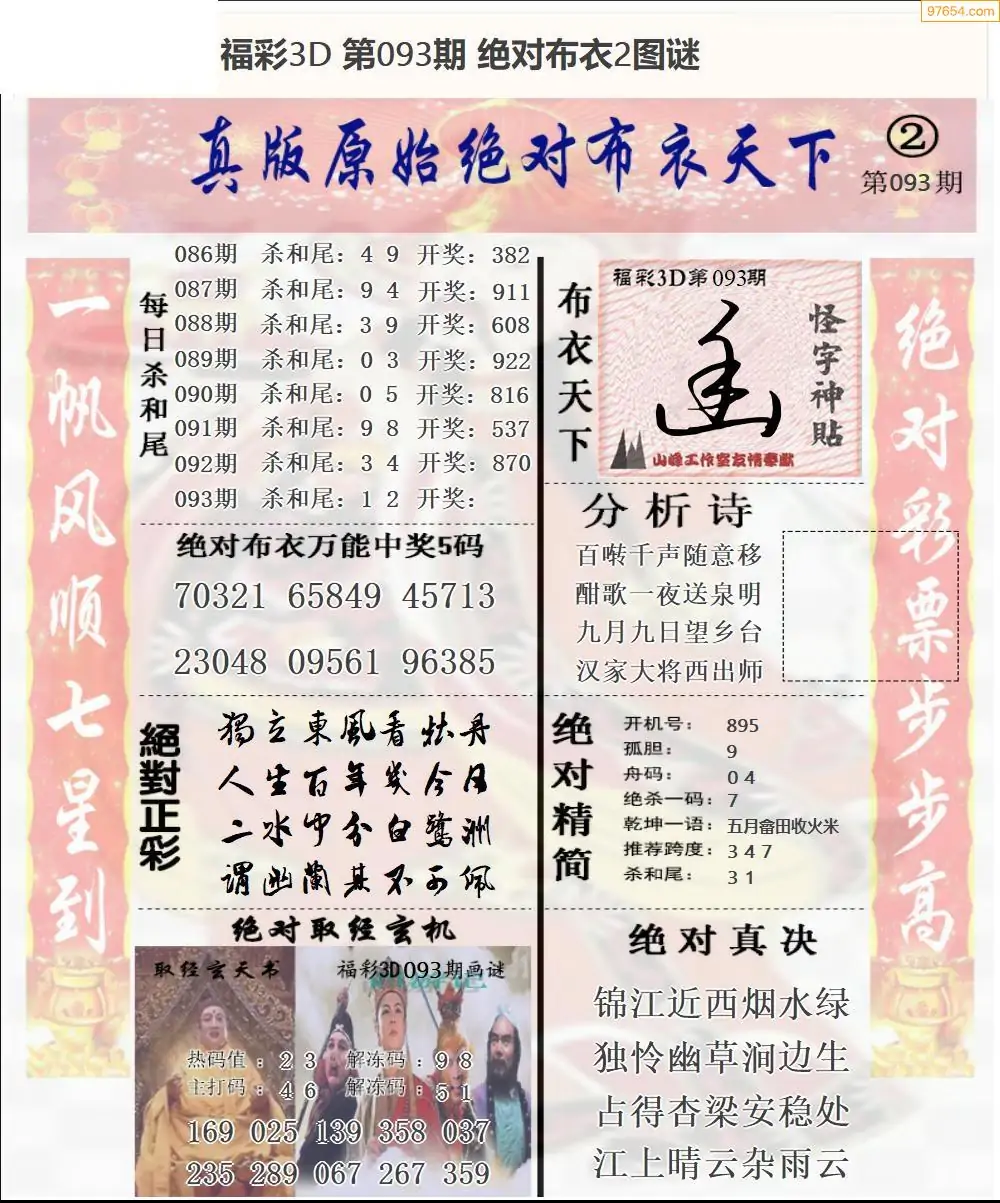 97654.com
福彩3D 第093期 绝对布衣2图谜
真版原始绝对布衣天下
②
第093期
一帆风顺七星到
每日杀和尾
086期 杀和尾：4 9 开奖：382
087期 杀和尾：9 4 开奖：911
088期 杀和尾：3 9 开奖：608
089期 杀和尾：0 3 开奖：922
090期 杀和尾：0 5 开奖：816
091期 杀和尾：9 8 开奖：537
092期 杀和尾：3 4 开奖：870
093期 杀和尾：1 2 开奖：
绝对布衣万能中奖5码
70321 65849 45713
23048 09561 96385
絕對正彩
獨立東風看牡丹
人生百年幾今日
二水中分白鹭洲
謂幽蘭其不可佩
绝对取经玄机
取经玄天书
福彩3D093期画谜
热码值：2 3 解冻码：9 8
主打码：4 6 解冻码：5 1
169 025 139 358 037
235 289 067 267 359
布衣天下
福彩3D第093期
怪字神貼
山峰工作室友情奉献
分析诗
百啭千声随意移
酣歌一夜送泉明
九月九日望乡台
汉家大将西出师
绝对精简
开机号：895
孤胆：9
舟码：0 4
绝杀一码：7
乾坤一语：五月畲田收火米
推荐跨度：3 4 7
杀和尾：3 1
绝对真决
锦江近西烟水绿
独怜幽草涧边生
占得杏梁安稳处
江上晴云杂雨云
绝对彩票步步高